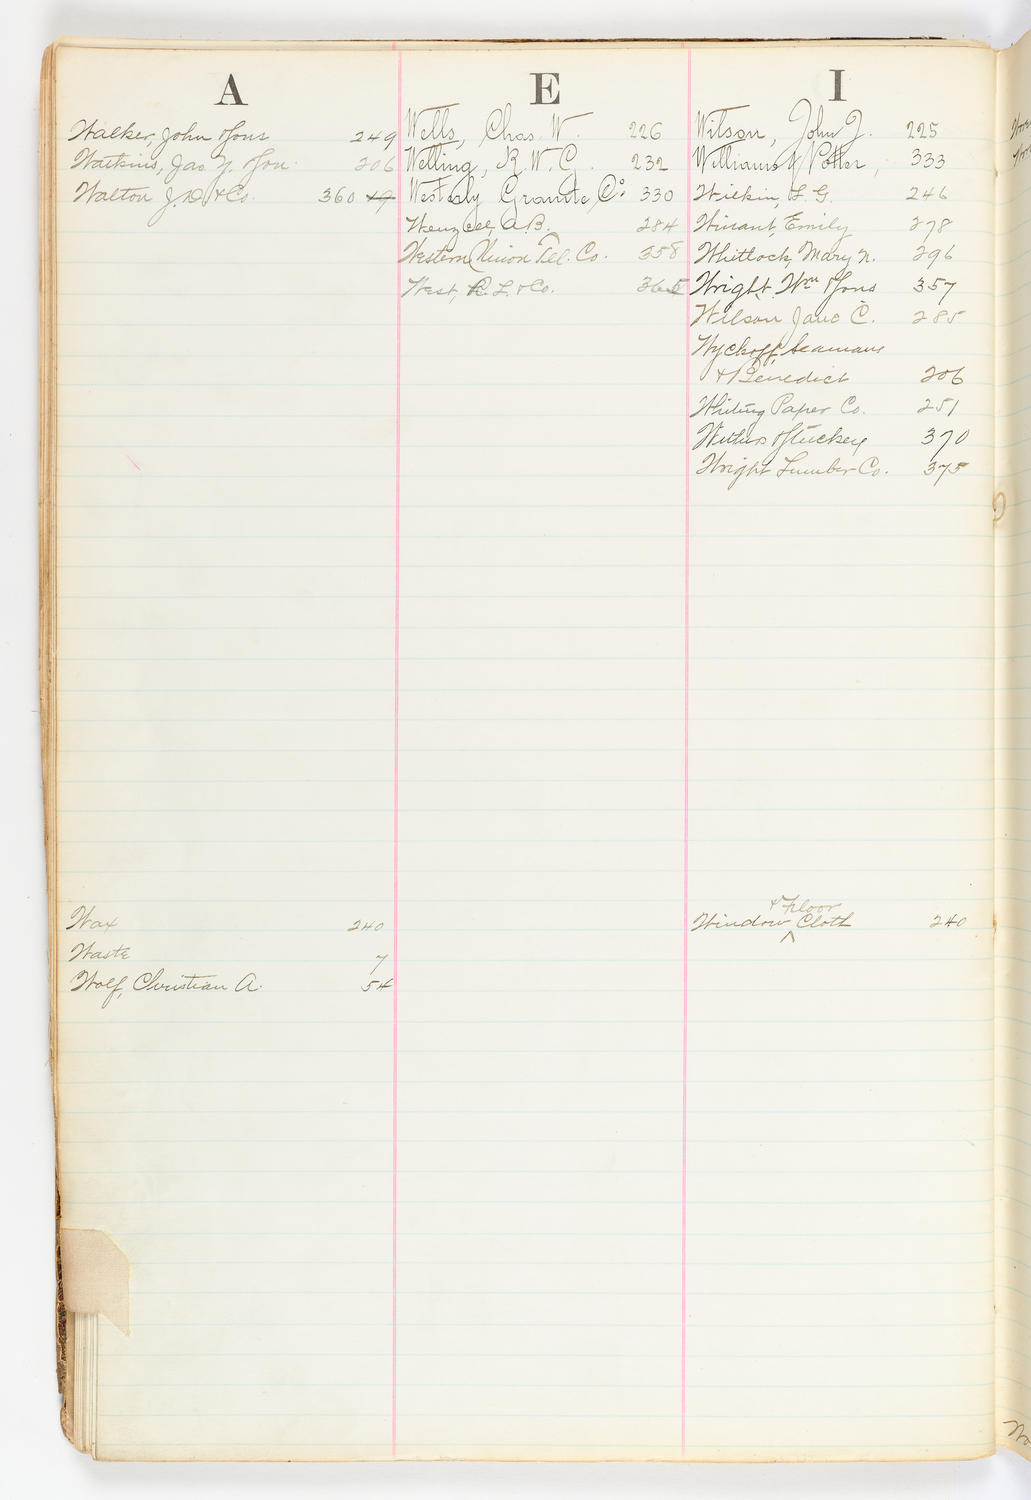 A
Walker, John & Sons 249
Watkins, Jas. Y. & Son. 206
Walton J. D. & Co. 360 49
Wax 240
Waste 7
Wolf, Christian A. 54
E
Wells, Chas. W. 226
Welling, R. W. G. 232
Westerly Granite Co. 330
Wenzell, A. B. 284
Western Union Tel. Co. 358
West, R. L. & Co. 365
I
Wilson, John J. 225
Williams & Potter, 333
Wilkin, L. G. 246
Winant, Emily 278
Whitlock, Mary N. 296
Wright, Wm & Sons 357
Wilson, Jane C. 285
Wyckoff, Seamans
& Benedict 206
Whiting Paper Co. 251
Withers & Stuckey 370
Wright Lumber Co. 375
& Floor
Window ^ Cloth 240